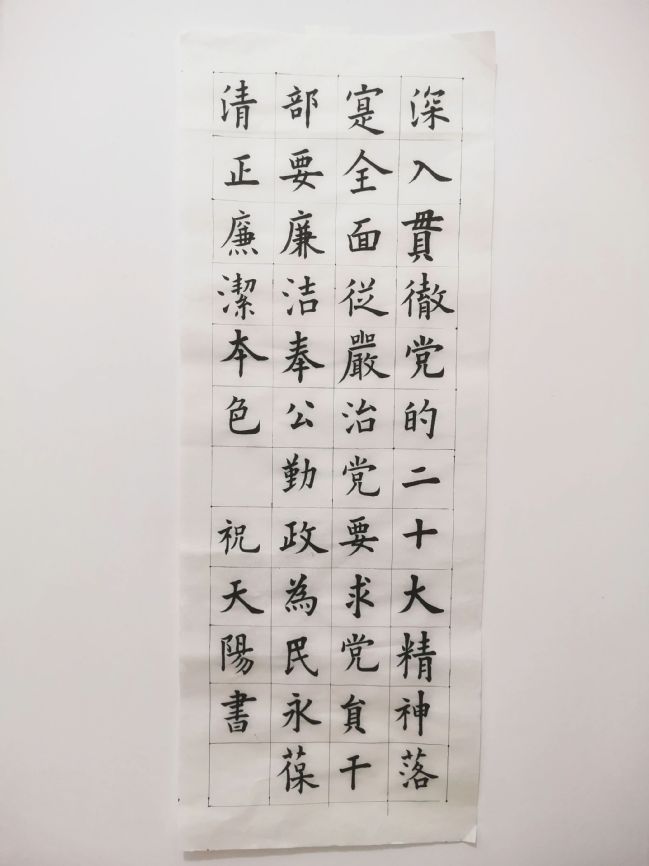 深入貫徹党的二十大精神落
寔全面從嚴治党要求党員干
部要廉洁奉公勤政為民永葆
清正廉潔本色 祝天陽書